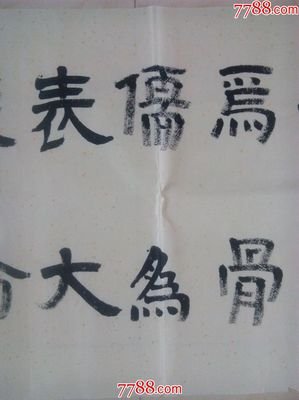 7788.com
爲骨
儒為
表大
7788.com